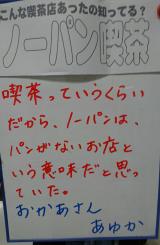 こんな喫茶店あったの知ってる?
ノーパン喫茶
喫茶っていうくらい
だから、ノーパンは、
パンがないお店と
いう意味だと思っ
ていた。
おかあさん
あゆか